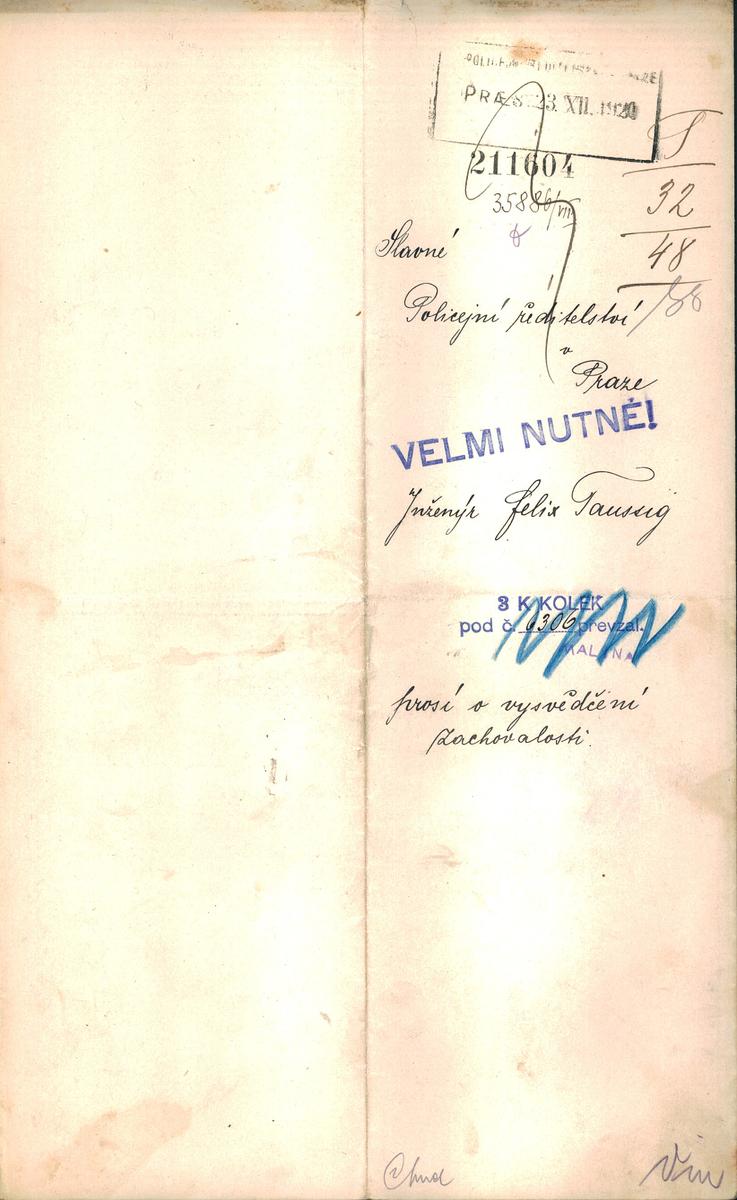 PRÆS. 23. XII. 1920
211604
35886/VII
32
48
Slavné
Policejní ředitelství
v
Praze
VELMI NUTNÉ!
Inženýr Felix Taussig
3 K KOLEK
pod č. 6306 převzal.
MALINA
prosí o vysvědčení
zachovalosti.